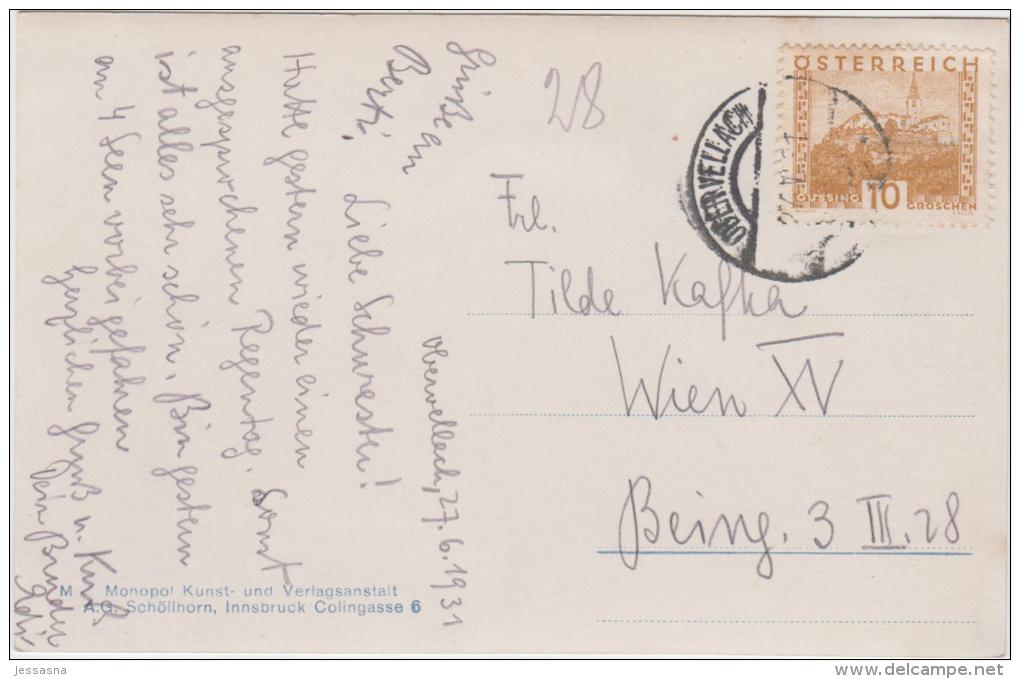 Obervellach, 27.6.1931
Liebe Schwester!
Hatte gestern wieder einen
ausgesprochenen Regentag. Sonst
ist alles sehr schön. Bin gestern
an 4 Seen vorbei gefahren
herzlichen Gruß u. Kuß
Dein Bruder
Grüße an
Berti.
28
ÖSTERREICH
GÜSSING 10 GROSCHEN
OBERVELLACH
Frl.
Tilde Kafka
Wien XV
Being. 3 III. 28
M Monopol Kunst- und Verlagsanstalt
A.G. Schöllhorn, Innsbruck Colingasse 6
jessasna
www.delcampe.net